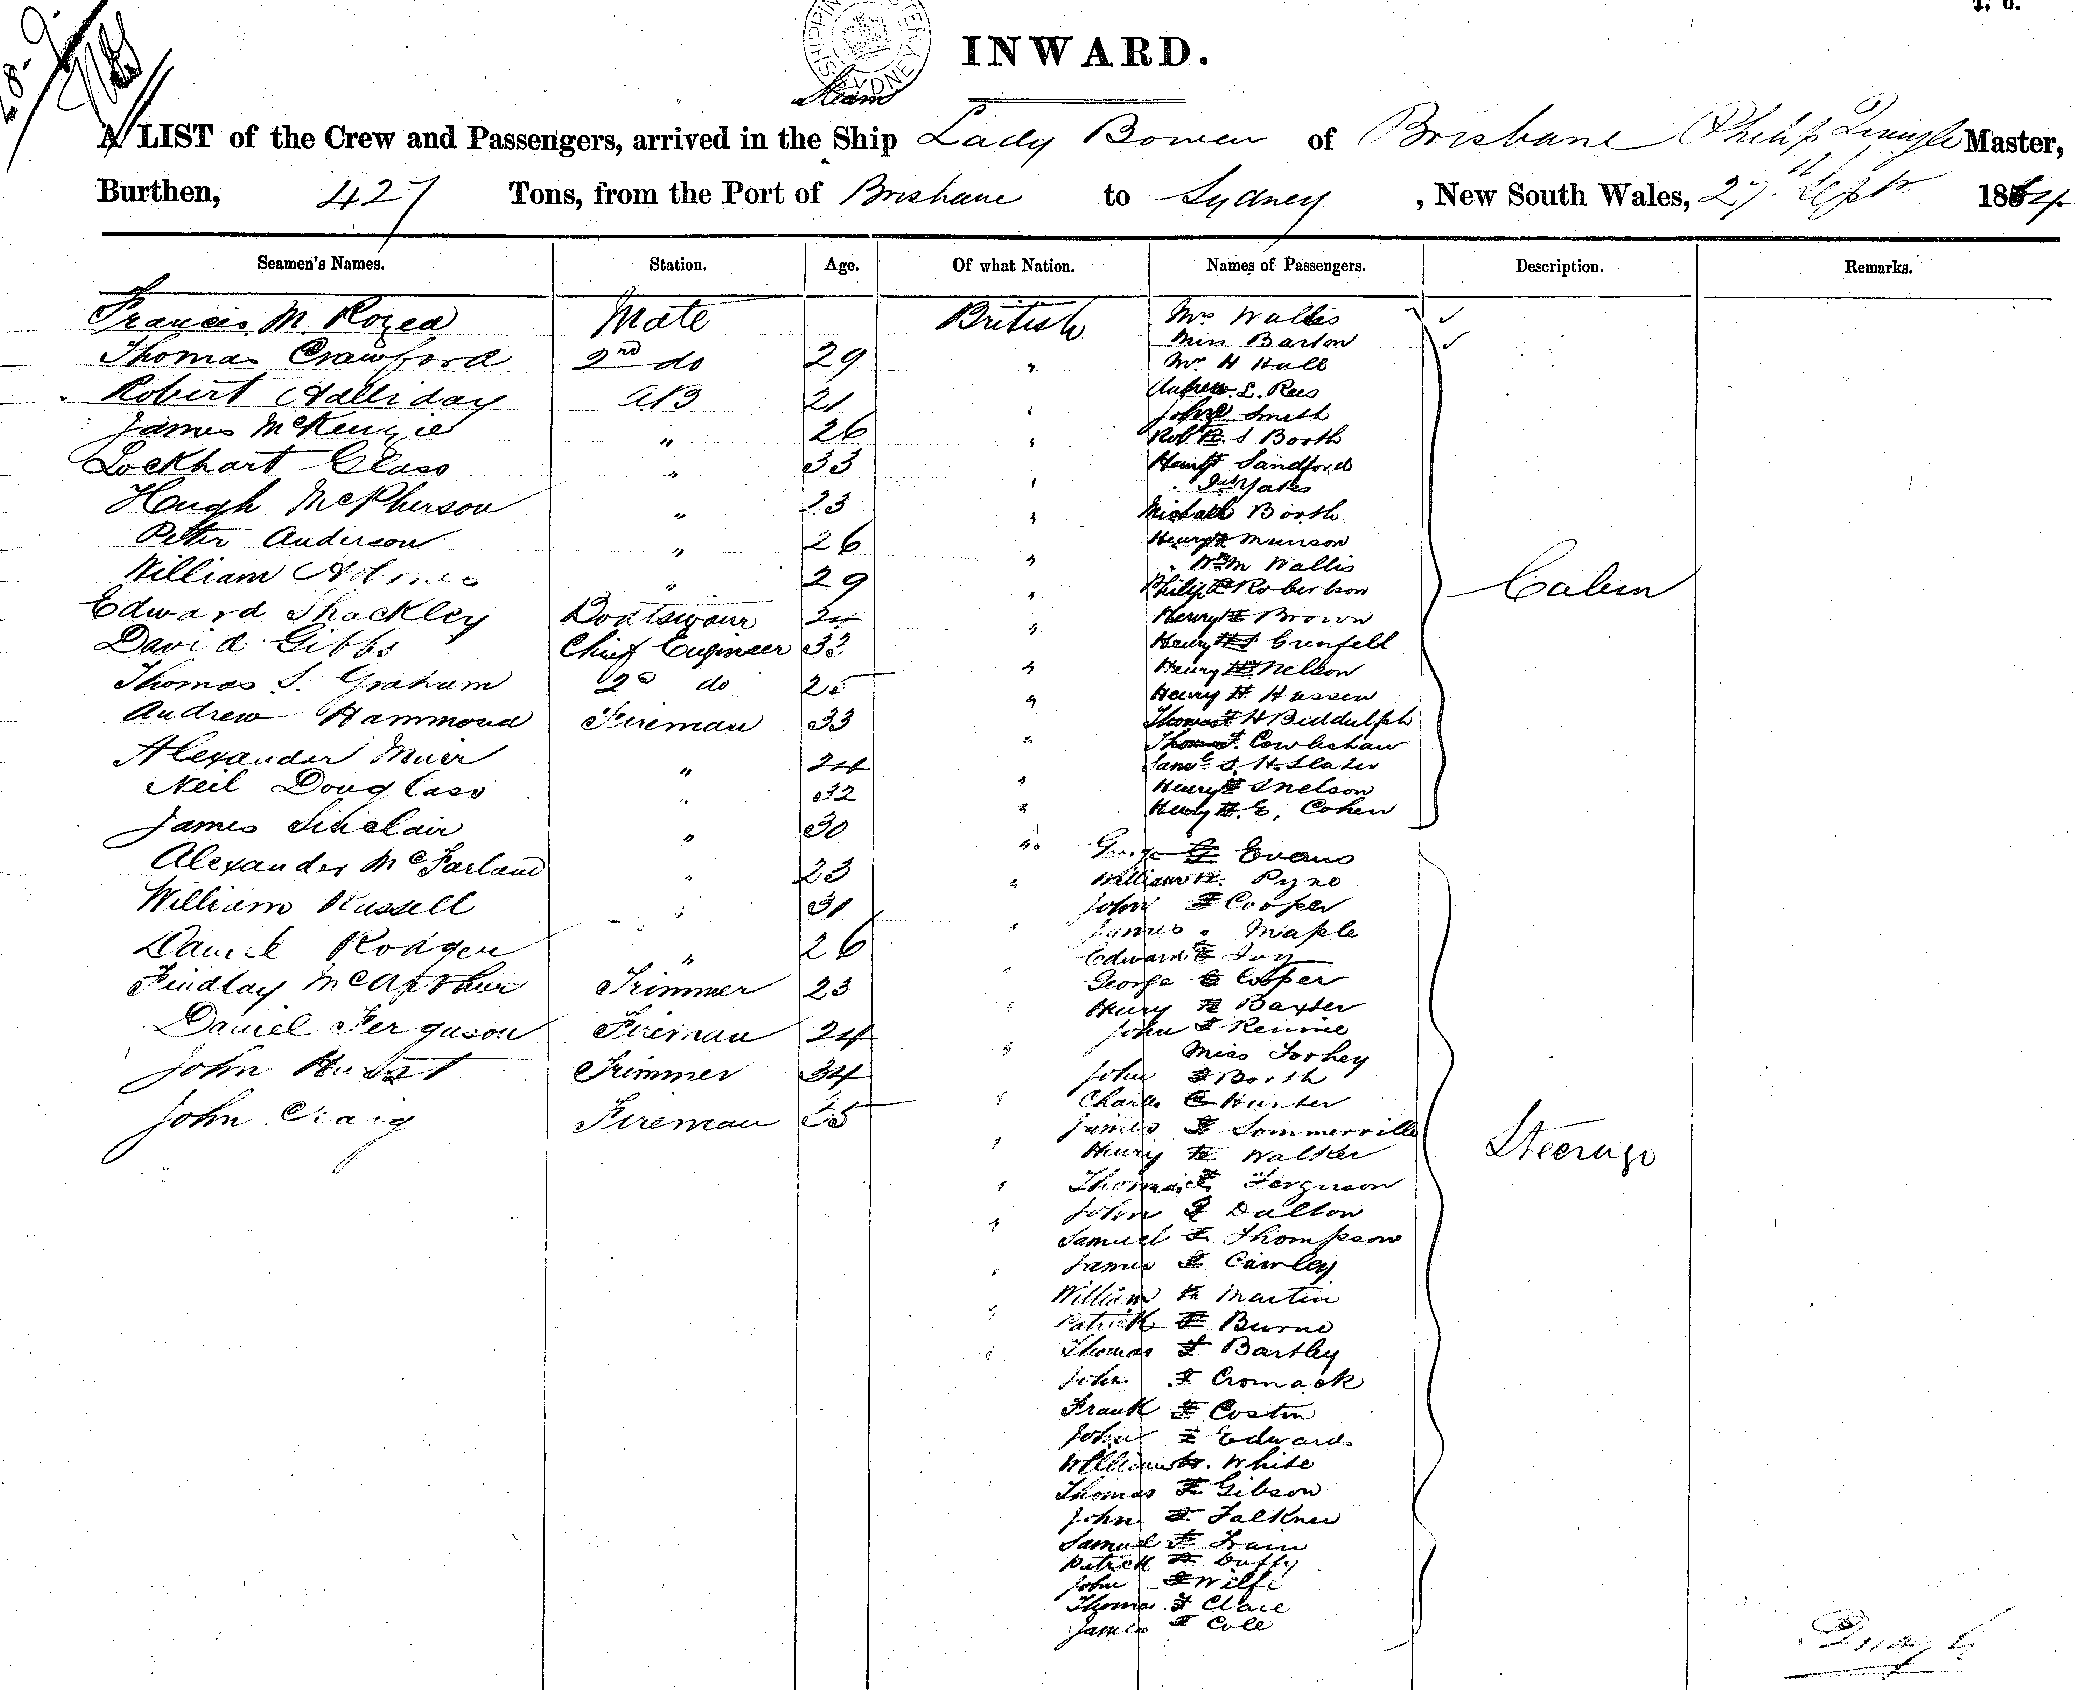 INWARD.
Steam
A LIST of the Crew and Passengers, arrived in the Ship Lady Bowen of Brisbane Philip Master,
Burthen, 427 Tons, from the Port of Brisbane to Sydney , New South Wales, 27th Sept 1864
Seamen's Names. Station. Age. Of what Nation. Names of Passengers. Description. Remarks.
Francis M. Rozea Mate British
Thomas Crawford 2nd do 29 "
Robert Halliday AB 21 "
James McKenzie " 26 "
Lockhart Glass " 33 "
Hugh McPherson " 23 "
Peter Anderson " 26 "
William Holmes " 29 "
Edward Shackley Boatswain 24 "
David Gibbs Chief Engineer 33 "
Thomas S. Graham 2nd do 25 "
Andrew Hammond Fireman 33 "
Alexander Muir " 24 "
Neil Douglass " 32 "
James Sinclair " 30 "
Alexander McFarland " 23 "
William Russell " 31 "
Daniel Rodger " 26 "
Findlay McArthur Trimmer 23 "
Daniel Ferguson Fireman 24 "
John Trimmer 34 "
John Craig Fireman "
Mrs Wallis
Miss Barton
Mr H Hall
Andrew L. Rees
John Smith
Robt S Booth
Henry Sandford
Yates
Michael Booth
Henry Munson
Wm Wallis
Philip Robertson
Henry Brown
Henry Grenfell
Henry Nelson
Henry H. Hassen
Thomas H Biddulph
Thomas Cowlishaw
Saml S. H. Slater
Henry Snelson
Henry E. Cohen
Cabin
George Evans
William Pyne
John Cooper
James Maple
Edward Joy
George Cooper
Henry Baxter
John Rennie
Miss Torhey
John Booth
Charles Hunter
James Sommerville
Henry Walker
Thomas Ferguson
John Dalton
Samuel Thompson
James Cawley
William Martin
Patrick Burne
Thomas Bartley
John Cromack
Frank Costin
John Edwards
William White
Thomas Gibson
John Falkner
Samuel Train
Patrick Duffy
John
Thomas Clare
James Cole
Steerage